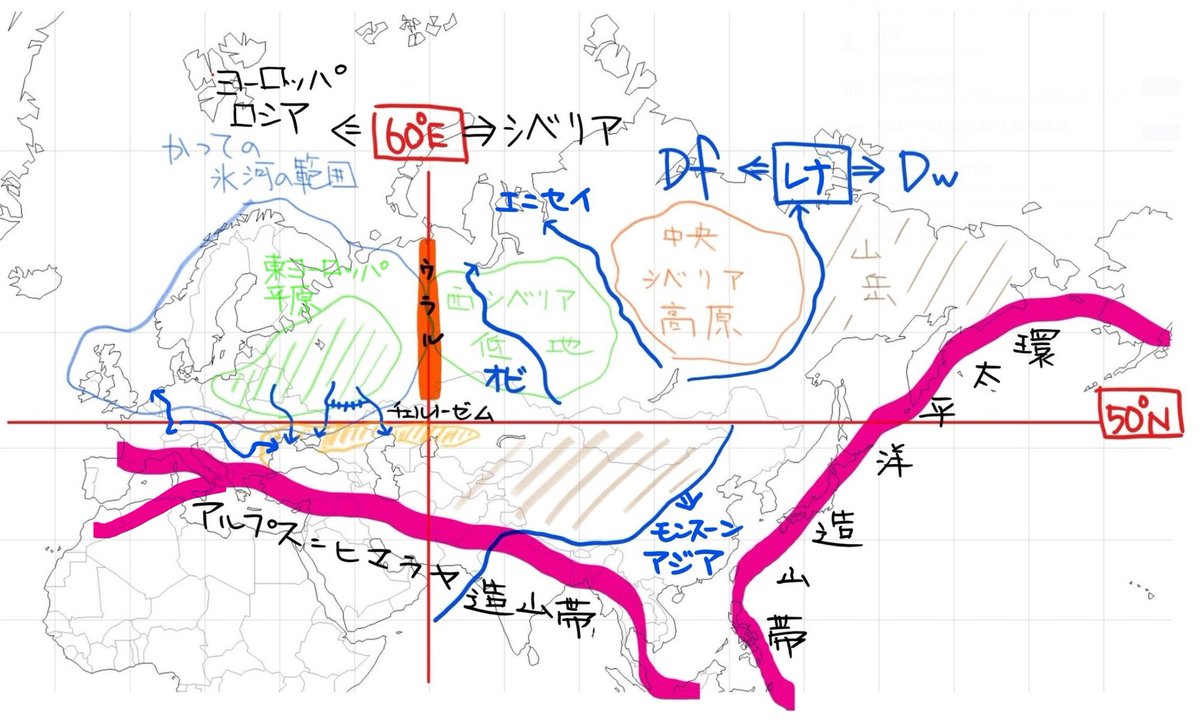 ヨーロッパ
ロシア
⇐ 60°E ⇒ シベリア
かつての
氷河の範囲
Df ⇐ レナ ⇒ Dw
エニセイ
中央
シベリア
高原
山
岳
東ヨーロッパ
平原
ウラル
西シベリア
低地
オビ
チェルノーゼム
50°N
環
太
平
洋
造
山
帯
モンスーン
アジア
アルプス=ヒマラヤ
造山帯